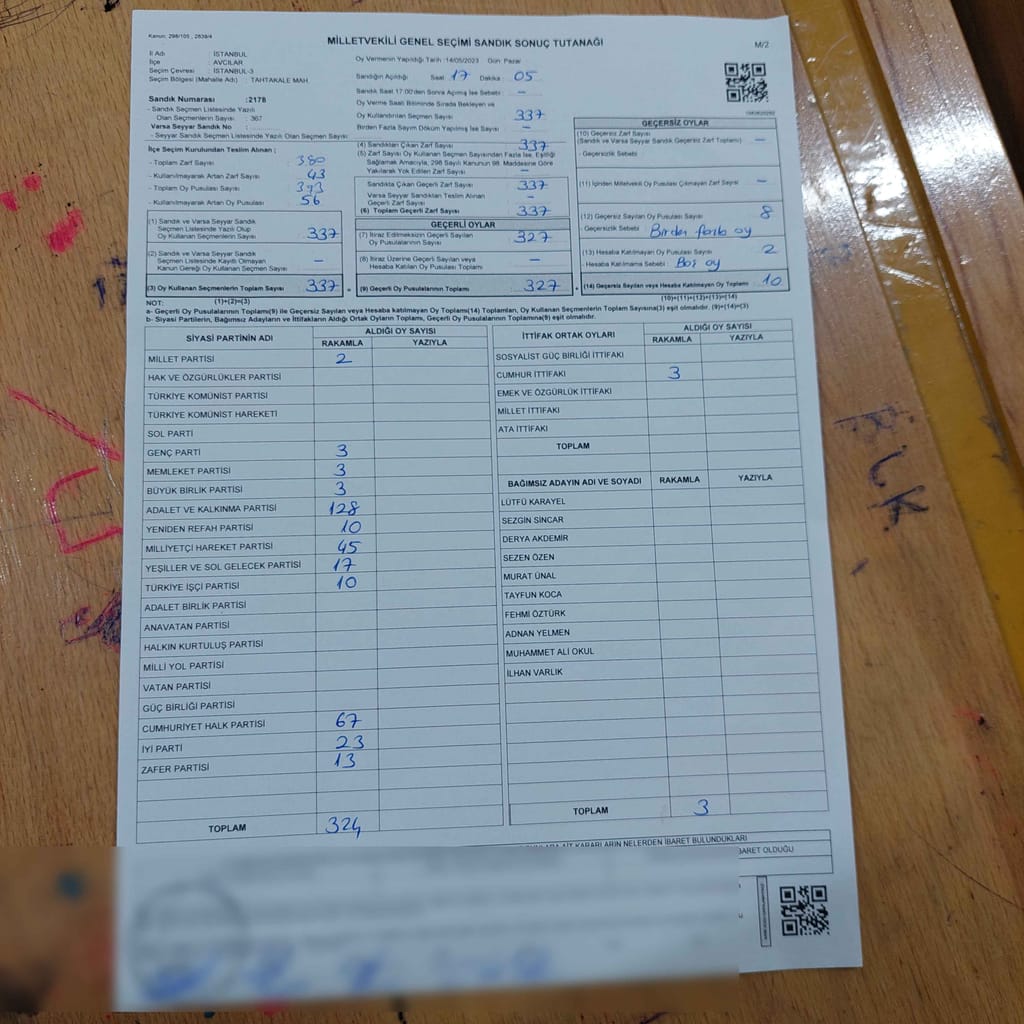 Kanun: 298/105 , 2839/4
MİLLETVEKİLİ GENEL SEÇİMİ SANDIK SONUÇ TUTANAĞI
M/2
İl Adı : İSTANBUL
İlçe : AVCILAR
Seçim Çevresi : İSTANBUL-3
Seçim Bölgesi (Mahalle Adı) : TAHTAKALE MAH
Sandık Numarası :2178
- Sandık Seçmen Listesinde Yazılı
Olan Seçmenlerin Sayısı : 367
Varsa Seyyar Sandık No :
- Seyyar Sandık Seçmen Listesinde Yazılı Olan Seçmen Sayısı:
İlçe Seçim Kurulundan Teslim Alınan ;
- Toplam Zarf Sayısı 380
- Kullanılmayarak Artan Zarf Sayısı 43
- Toplam Oy Pusulası Sayısı 393
- Kullanılmayarak Artan Oy Pusulası 56
(1) Sandık ve Varsa Seyyar Sandık
Seçmen Listesinde Yazılı Olup
Oy Kullanan Seçmenlerin Sayısı 337
(2) Sandık ve Varsa Seyyar Sandık
Seçmen Listesinde Kayıtlı Olmayan
Kanun Gereği Oy Kullanan Seçmen Sayısı –
(3) Oy Kullanan Seçmenlerin Toplam Sayısı 337
Oy Vermenin Yapıldığı Tarih :14/05/2023 Gün Pazar
Sandığın Açıldığı Saat 17 Dakika 05
Sandık Saat 17:00'den Sonra Açılmış İse Sebebi : –
Oy Verme Saati Bitiminde Sırada Bekleyen ve
Oy Kullandırılan Seçmen Sayısı : 337
Birden Fazla Sayım Döküm Yapılmış İse Sayısı –
(4) Sandıktan Çıkan Zarf Sayısı 337
(5) Zarf Sayısı Oy Kullanan Seçmen Sayısından Fazla İse, Eşitliği
Sağlamak Amacıyla, 298 Sayılı Kanunun 98. Maddesine Göre
Yakılarak Yok Edilen Zarf Sayısı –
Sandıkta Çıkan Geçerli Zarf Sayısı 337
Varsa Seyyar Sandıktan Teslim Alınan
Geçerli Zarf Sayısı –
(6) Toplam Geçerli Zarf Sayısı 337
GEÇERLİ OYLAR
(7) İtiraz Edilmeksizin Geçerli Sayılan
Oy Pusulalarının Sayısı 327
(8) İtiraz Üzerine Geçerli Sayılan veya
Hesaba Katılan Oy Pusulası Toplamı –
(9) Geçerli Oy Pusulalarının Toplamı 327
GEÇERSİZ OYLAR
(10) Geçersiz Zarf Sayısı
(Sandık ve Varsa Seyyar Sandık Geçersiz Zarf Toplamı) –
- Geçersizlik Sebebi
(11) İçinden Milletvekili Oy Pusulası Çıkmayan Zarf Sayısı –
(12) Geçersiz Sayılan Oy Pusulası Sayısı 8
- Geçersizlik Sebebi Birden fazla oy
(13) Hesaba Katılmayan Oy Pusulası Sayısı 2
- Hesaba Katılmama Sebebi : Boş oy
(14) Geçersiz Sayılan veya Hesaba Katılmayan Oy Toplamı 10
NOT: (1)+(2)=(3) (10)+(11)+(12)+(13)=(14)
a- Geçerli Oy Pusulalarının Toplamı(9) ile Geçersiz Sayılan veya Hesaba katılmayan Oy Toplamı(14) Toplamları, Oy Kullanan Seçmenlerin Toplam Sayısına(3) eşit olmalıdır. (9)+(14)=(3)
b- Siyasi Partilerin, Bağımsız Adayların ve İttifakların Aldığı Oyların Toplamı, Geçerli Oy Pusulalarının Toplamına(9) eşit olmalıdır.
SİYASİ PARTİNİN ADI ALDIĞI OY SAYISI
RAKAMLA YAZIYLA
MİLLET PARTİSİ 2
HAK VE ÖZGÜRLÜKLER PARTİSİ
TÜRKİYE KOMÜNİST PARTİSİ
TÜRKİYE KOMÜNİST HAREKETİ
SOL PARTİ
GENÇ PARTİ 3
MEMLEKET PARTİSİ 3
BÜYÜK BİRLİK PARTİSİ 3
ADALET VE KALKINMA PARTİSİ 128
YENİDEN REFAH PARTİSİ 10
MİLLİYETÇİ HAREKET PARTİSİ 45
YEŞİLLER VE SOL GELECEK PARTİSİ 17
TÜRKİYE İŞÇİ PARTİSİ 10
ADALET BİRLİK PARTİSİ
ANAVATAN PARTİSİ
HALKIN KURTULUŞ PARTİSİ
MİLLİ YOL PARTİSİ
VATAN PARTİSİ
GÜÇ BİRLİĞİ PARTİSİ
CUMHURİYET HALK PARTİSİ 67
İYİ PARTİ 23
ZAFER PARTİSİ 13
TOPLAM 324
İTTİFAK ORTAK OYLARI ALDIĞI OY SAYISI
RAKAMLA YAZIYLA
SOSYALİST GÜÇ BİRLİĞİ İTTİFAKI
CUMHUR İTTİFAKI 3
EMEK VE ÖZGÜRLÜK İTTİFAKI
MİLLET İTTİFAKI
ATA İTTİFAKI
TOPLAM
BAĞIMSIZ ADAYIN ADI VE SOYADI RAKAMLA YAZIYLA
LÜTFÜ KARAYEL
SEZGİN SİNCAR
DERYA AKDEMİR
SEZEN ÖZEN
MURAT ÜNAL
TAYFUN KOCA
FEHMİ ÖZTÜRK
ADNAN YELMEN
MUHAMMET ALİ OKUL
İLHAN VARLIK
TOPLAM 3
AİT KARARLARIN NELERDEN İBARET BULUNDUKLARI
İBARET OLDUĞU